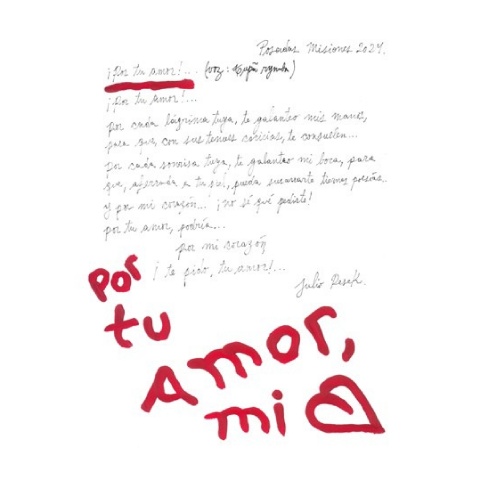 Posadas Misiones 2024.
¡Por tu amor!... (voz:
¡Por tu amor!...
por cada lágrima tuya, te galanteo mis manos,
para que, con sus tenues caricias, te consuelen...
por cada sonrisa tuya, te galanteo mi boca, para
que, aferrada a tu piel, pueda susurrarte tiernas poesías..
y por mi corazón... ¡no sé qué pedirte!
por tu amor, podría...
por mi corazón
¡te pido, tu amor!...
Julio Resek.
Por
tu
Amor,
mi